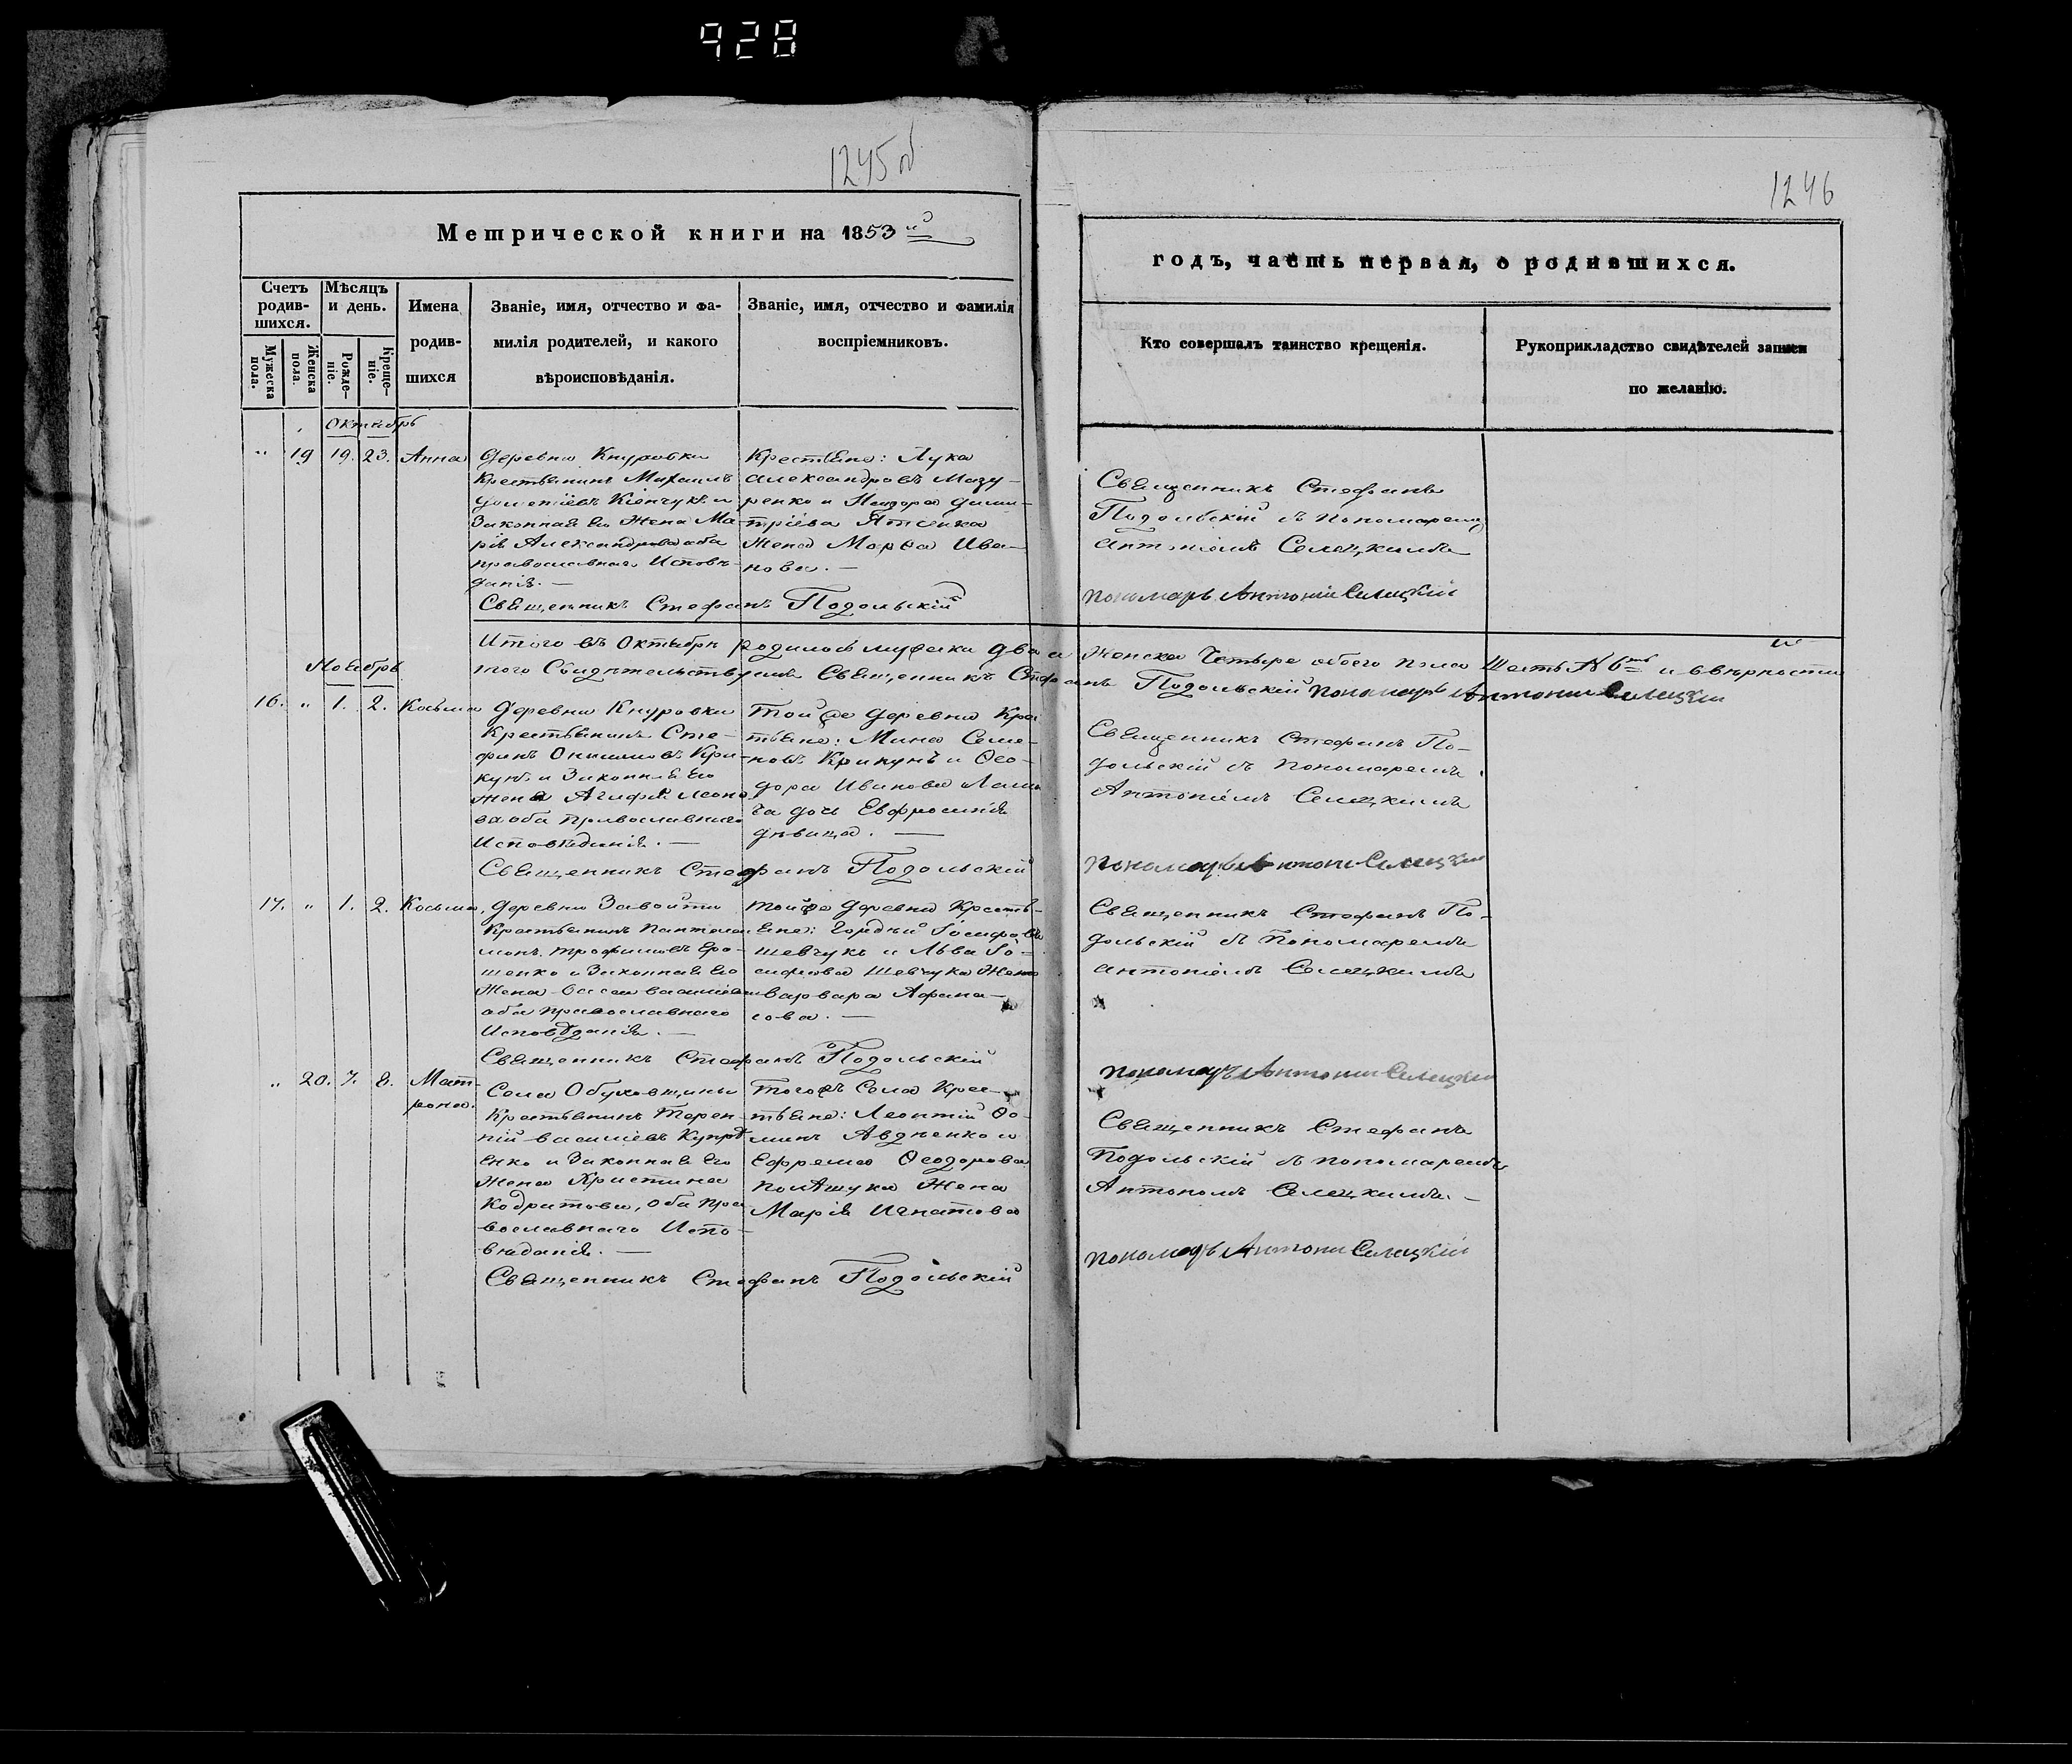 928
1245 об
1246
Метрической книги на 1853й
годъ, часть первая, о родившихся.
Счетъ родив-
шихся.
Мужеска пола.
Женска пола.
Мѣсяцъ
и день.
Рожде-
ніе.
Креще-
ніе.
Имена
родив-
шихся
Званіе, имя, отчество и фа-
милія родителей, и какого
вѣроисповѣданія.
Званіе, имя, отчество и фамилія
воспріемниковъ.
Кто совершалъ таинство крещенія.
Рукоприкладство свидѣтелей записи
по желанію.
Октябрь
" 19 19. 23. Анна
Деревни Кнуровки
Крестьянинъ Михаилъ
и
Законная Его Жена Ма-
рія Александрова оба
православнаго Исповѣ-
данія. —
Крестьяне: Лука
Александровъ Мазу-
ренко и Дими-
тріева Ятченка
Жена Марѳа Ива-
нова. —
Священникъ Стефанъ Подольскій
Священникъ Стефанъ
Подольскій съ Пономаремъ
Антоніемъ Селецкимъ
Пономарь Антоній Селецкій
Итого въ Октябрѣ родилось мужеска два и женска Четыре обоего пола Шесть № 6ть и вѣрности
того Свидѣтельствуемъ Священникъ Стефанъ Подольскій Пономарь Антоній Селецкій
Ноябрь
16. " 1. 2. Косьма
Деревни Кнуровки
Крестьянинъ Сте-
фанъ Онисимовъ Кри-
кунъ и Законная Его
Жена Агафія Леоно
ва оба православнаго
Исповѣданія. —
Той же деревни Кре
стьяне: Мина Семе-
новъ Крикунъ и Ѳео-
дора Иванова
дочь Евфросинія
дѣвица. —
Священникъ Стефанъ Подольскій
Священникъ Стефанъ По-
дольскій съ Пономаремъ
Антоніемъ Селецкимъ
Пономарь Антоній Селецкій
17. " 1. 2. Косьма,
Деревни Завойти
Крестьянинъ Пантелеи
монъ Трофимовъ Еро-
шенко и Законная Его
Жена
оба православнаго
Исповѣданія. —
Той же деревни Кресть-
яне: Гордій Іосифовъ
Шевчукъ и Льва Іо-
сифова Шевчука Жена
Варвара Афана-
сова. —
Священникъ Стефанъ Подольскій
Священникъ Стефанъ По-
дольскій съ Пономаремъ
Антоніемъ Селецкимъ
Пономарь Антоній Селецкій
" 20. 7. 8. Мат-
рона.
Села Обуховщины
Крестьянинъ Терен-
тій Василіевъ Купрѣ
енко и Законная Его
Жена Христина
Кодратова, оба пра
вославнаго Испо-
вѣданія. —
Тогожъ Села Крес-
тьяне: Леонтій Ѳо-
минъ Авдѣенко и
Ефрема Ѳеодорова
Полящука Жена
Марія Игнатова
Священникъ Стефанъ Подольскій
Священникъ Стефанъ
Подольскій съ Пономаремъ
Антономъ Селецкимъ. —
Пономарь Антоній Селецкій